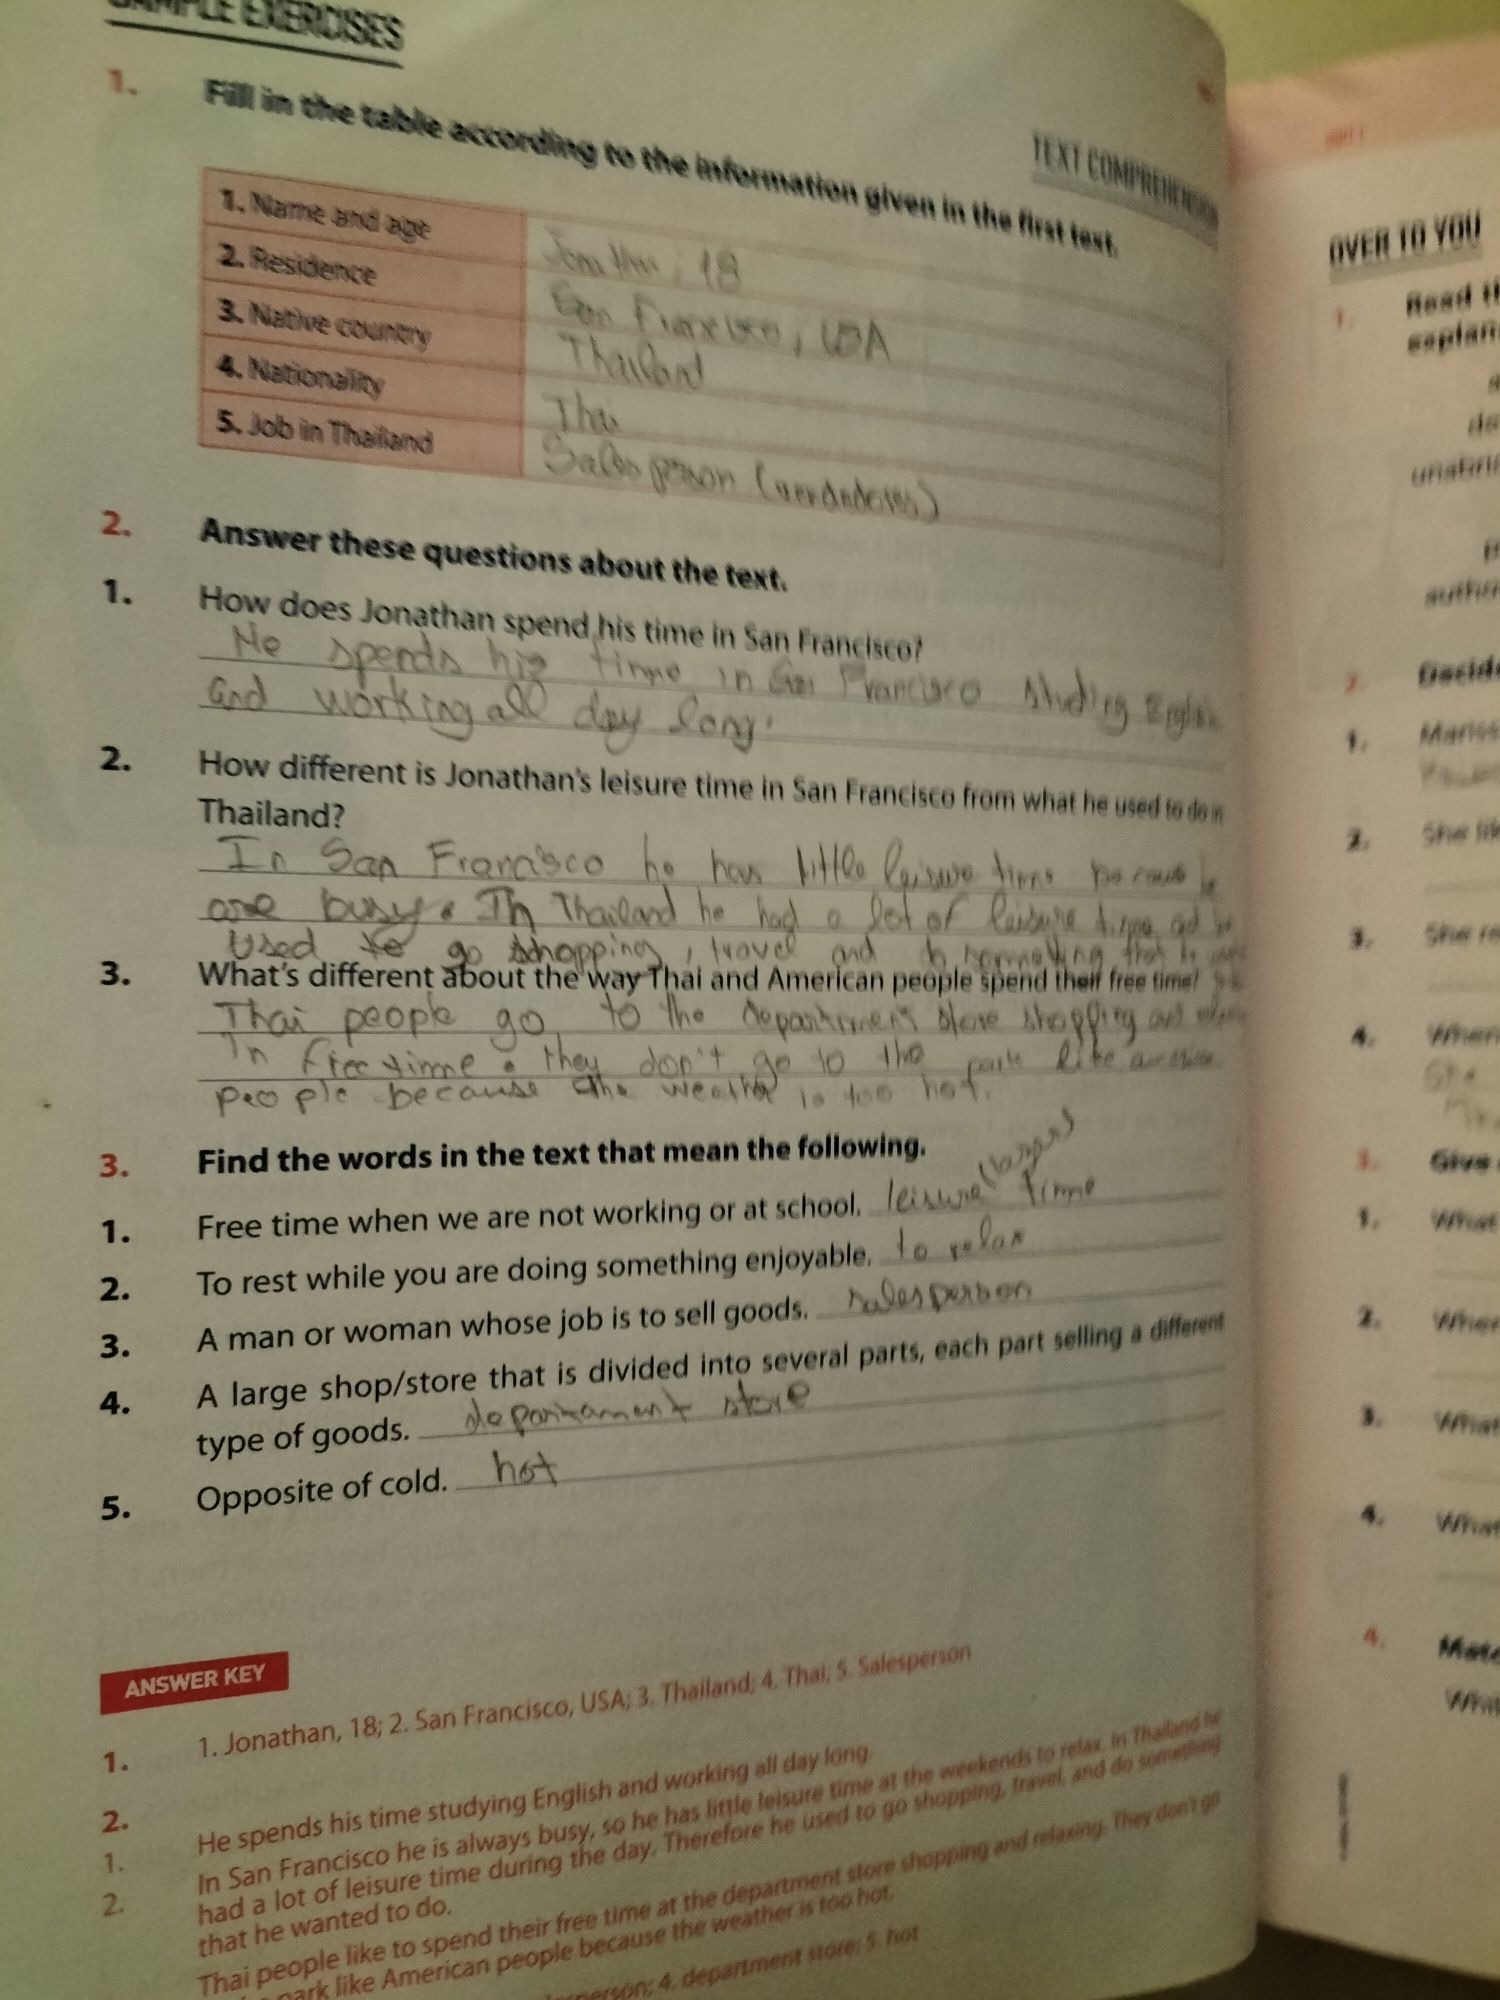 SAMPLE EXERCISES
TEXT COMPREHENSION
1. Fill in the table according to the information given in the first text.
1. Name and age 18
2. Residence San Francisco, USA
3. Native country Thailand
4. Nationality Thai
5. Job in Thailand Sales person
2. Answer these questions about the text.
1. How does Jonathan spend his time in San Francisco?
He spends his time in San Francisco studing
and working all day long.
2. How different is Jonathan's leisure time in San Francisco from what he used to do in
Thailand?
In San Francisco he has little leisure time
busy. In Thailand he had a lot of leisure time
Used to go shopping, travel and
3. What's different about the way Thai and American people spend their free time?
Thai people go to the department store shopping and
In free time. they don't go to the park like
people because the weather is too hot.
3. Find the words in the text that mean the following.
1. Free time when we are not working or at school. leisure time
2. To rest while you are doing something enjoyable. to relax
3. A man or woman whose job is to sell goods. salesperson
4. A large shop/store that is divided into several parts, each part selling a different
type of goods. store
5. Opposite of cold. hot
ANSWER KEY
1. 1. Jonathan, 18; 2. San Francisco, USA; 3. Thailand; 4. Thai; 5. Salesperson
2.
1. He spends his time studying English and working all day long.
2. In San Francisco he is always busy, so he has little leisure time at the weekends to relax. In Thailand he
had a lot of leisure time during the day. Therefore he used to go shopping, travel, and do something
that he wanted to do.
Thai people like to spend their free time at the department store shopping and relaxing. They don't go
park like American people because the weather is too hot.
4. department store; 5. hot
OVER TO YOU
1. Read
2.
1.
2. She
3. She
4. When
3. Give
1. What
2.
3. What
4. What
4.